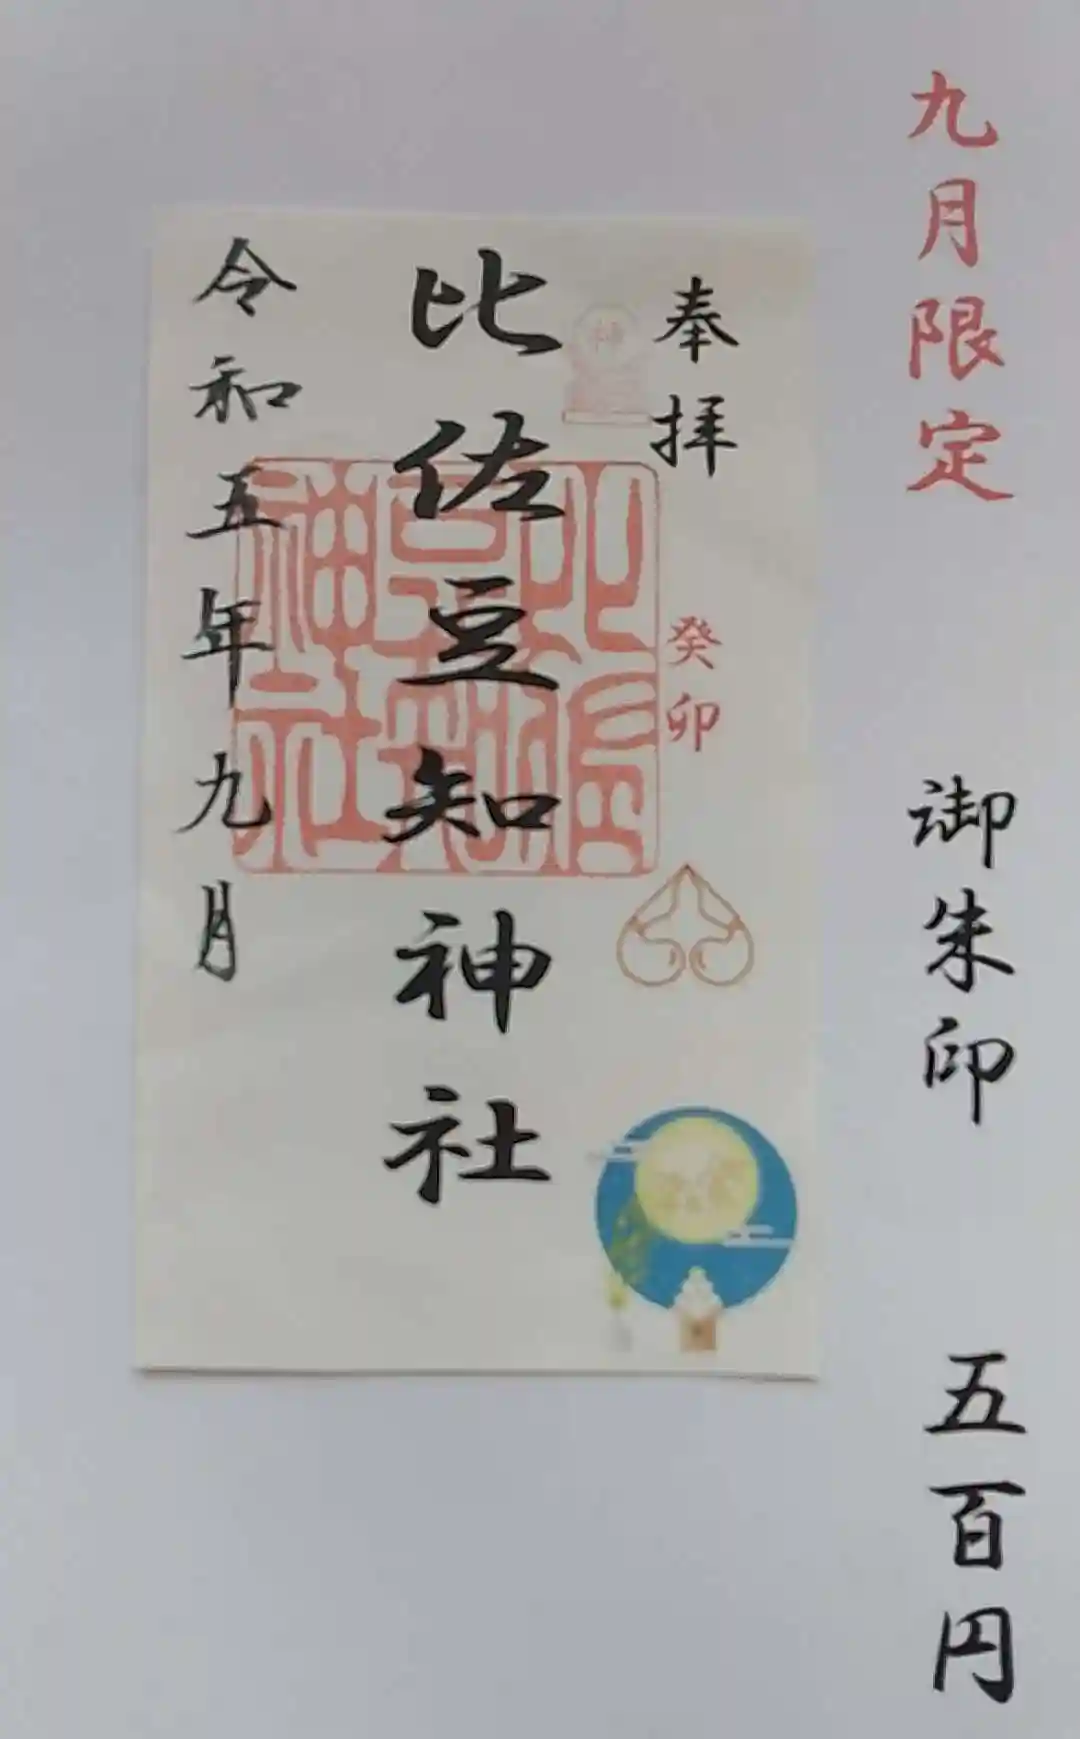 九月限定
御朱印
五百円
奉拝
癸卯
比佐豆知神社
令和五年九月